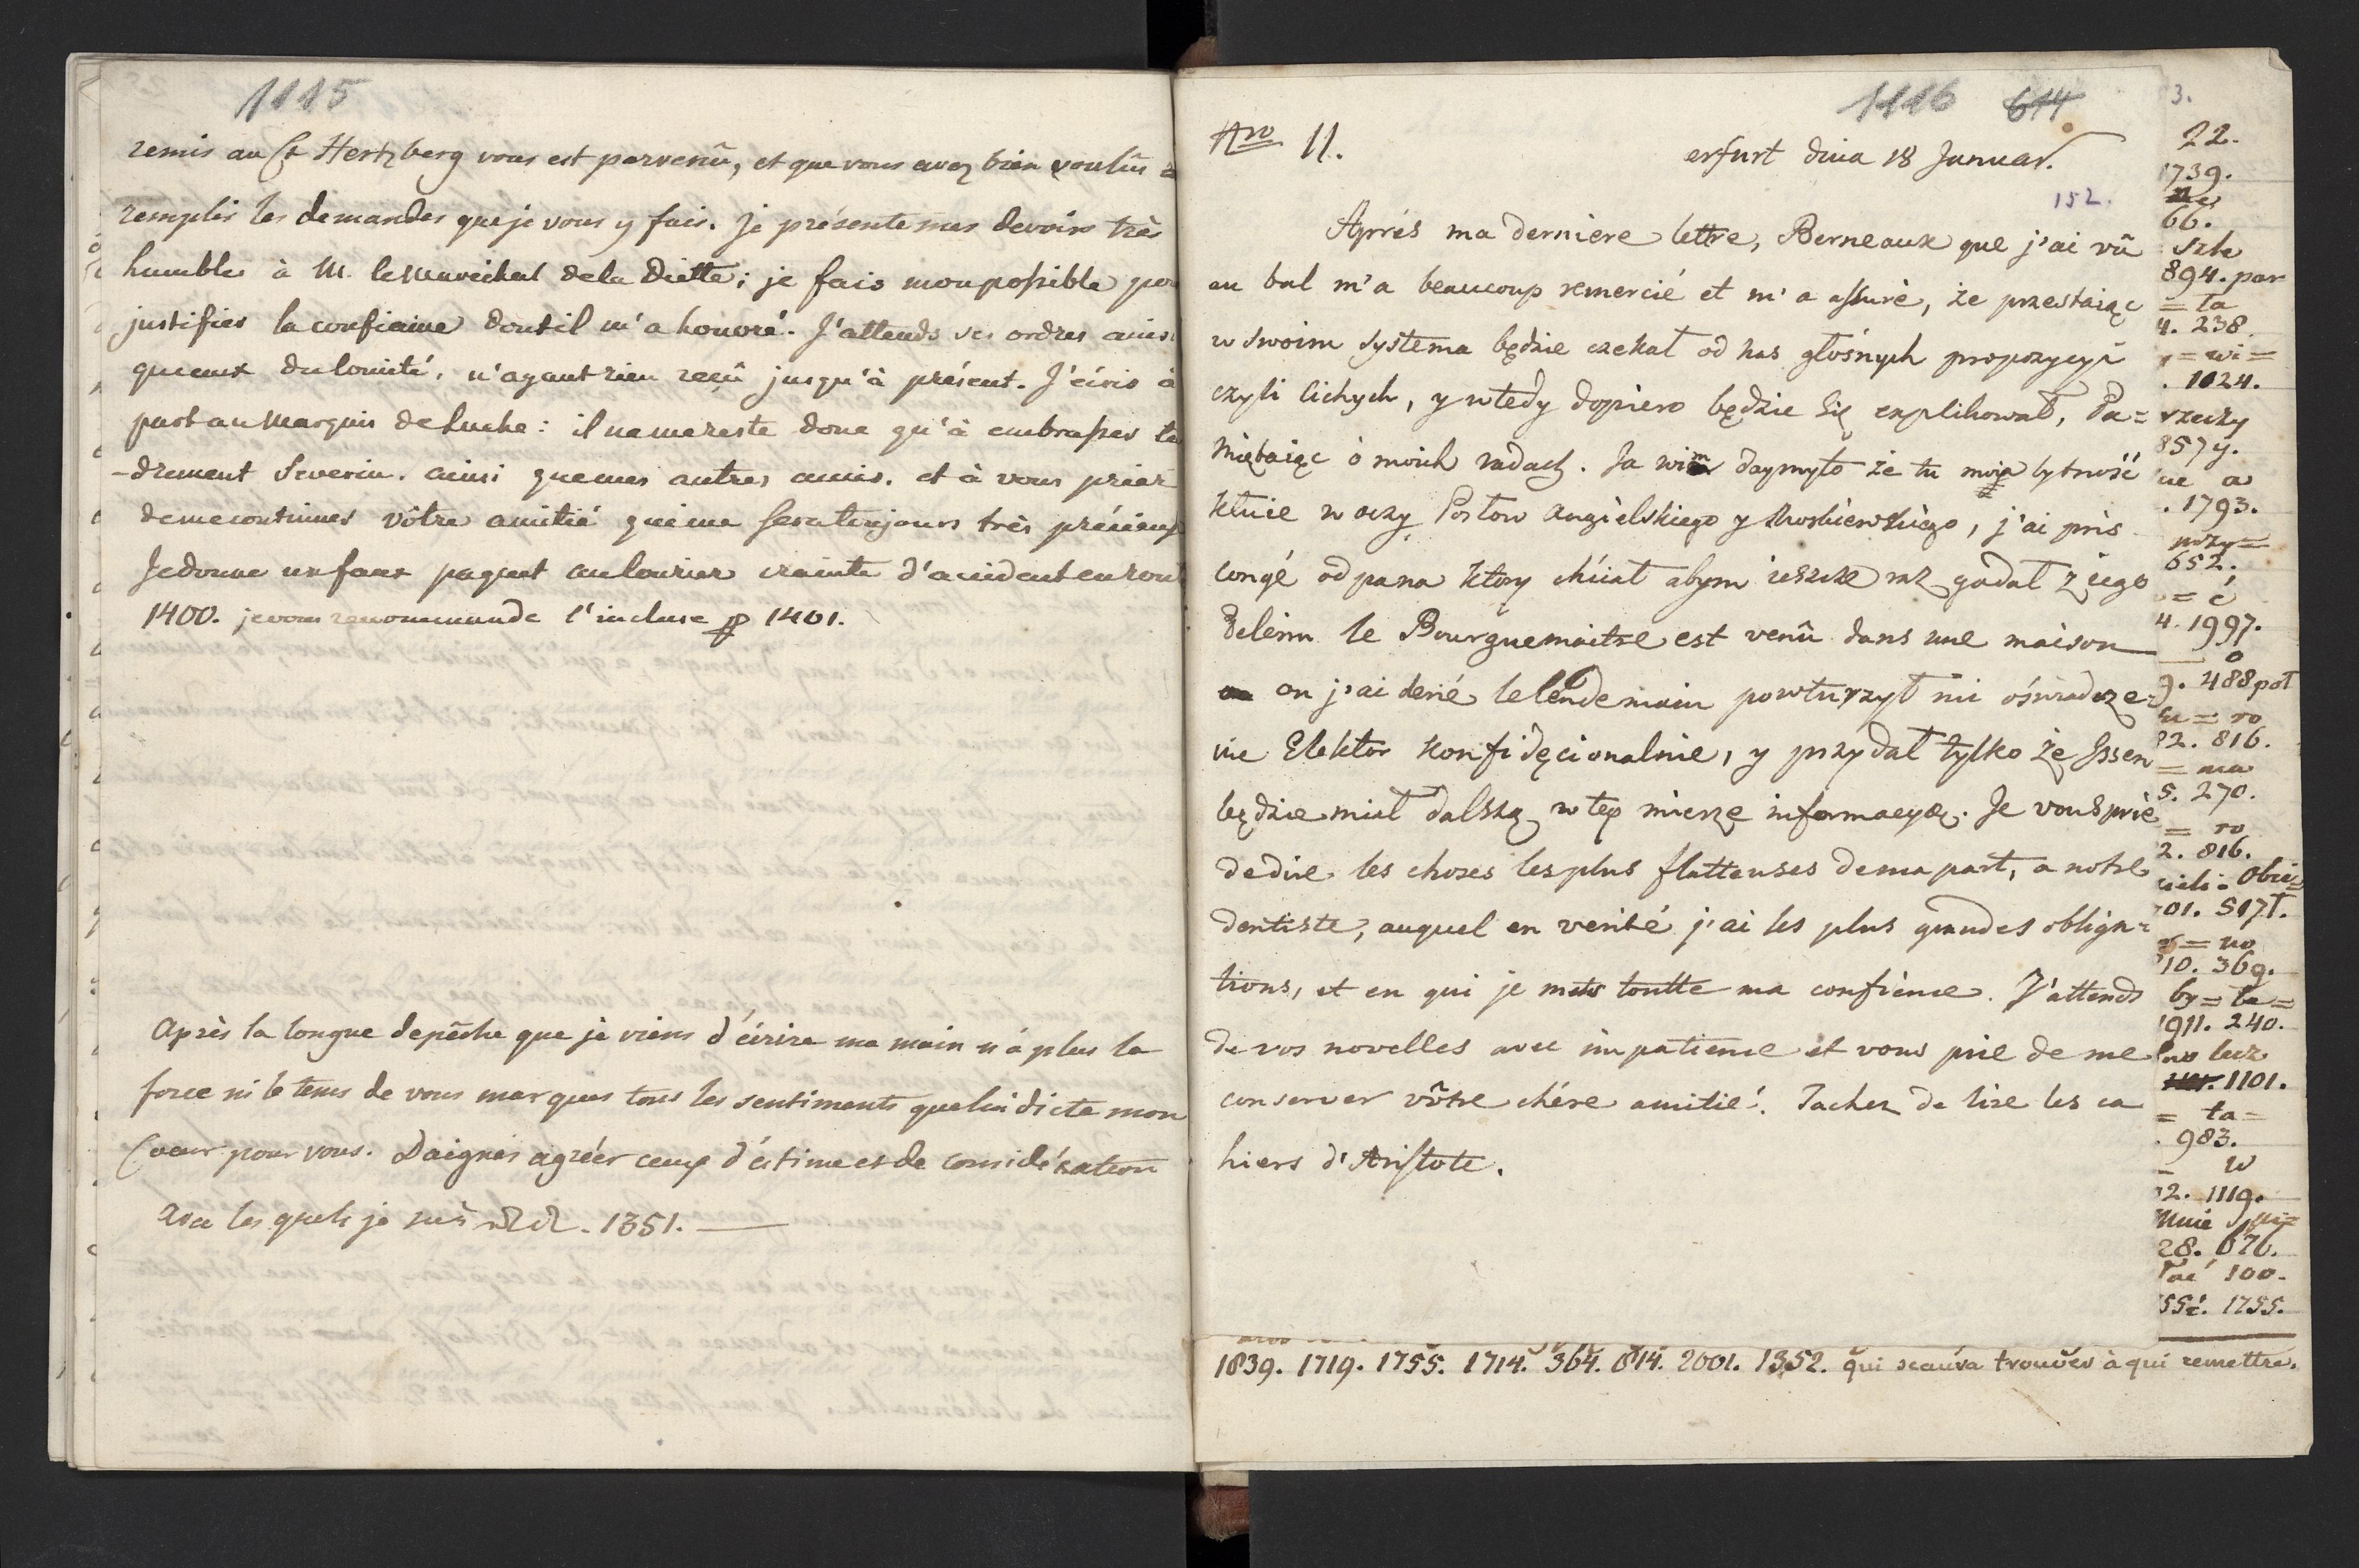 1115
remis au Ct Hertzberg vous est parvenû, et que vous avez bien voulûs
remplir les demandes que je vous y fais. Je présente mes devoirs très
humbles à M. le Marêchal de la Diette; je fais mon possible pou
justifier la confiance dont il m'a honoré. J'attends ses ordres ainsi
que ceux du Comité, n'ayant rien reçû jusqu'à présent. J'écris à
part au Marquis de Luche: il ne me reste donc qu'à embrasser te
-drement Severin. ainsi que mes autres amis. et à vous prier
de me continuer vôtre amitié qui me sera toujours très précieuse
Je donne un faux paquet au Courier crainte d'accident en rout
1400. je vous recommande l'incluse p 1401.
Après la longue depêche que je viens d'écrire ma main n'a plus la
force ni le tems de vous marquer tous les sentiments que lui dicte mon
Coeur pour vous. Daignez agréer ceux d'éstime et de considération
avec les quels je suis 1351.
1116 614
3.
Nro 11.
erfurt dnia 18 Januar.
152.
Aprés ma derniere lettre, Berneaux que j'ai vû
au bal m'a beaucoup remercié et m'a assuré, że przestaiąc
w swoim systema będzie czekał od nas głośnych propozycyi
czyli cichych, y wtedy dopiero będzie się explikował, Pa=
miętaiąc o moich radach. Ja wim daymyto że tu moja bytność
kłuie w oczy Posłow Angielskiego y Moskiewskiego, j'ai pris
congé od pana ktory chciał abym ieszcze raz gadał z iego
Delém le Bourguemaitre est venû dans une maison
ou j'ai diné le lendemain powturzył mi oświadcze=
nie Elektor konfidęcionalnie, y przydał tylko że Essen
będzie miał dalszą w tey mierze informacyą. Je vous prie
de dire les choses les plus flatteuses de ma part, a notre
dentiste, auquel en verité j'ai les plus grandes obliga=
tions, et en qui je mets toutte ma confience. J'attends
de vos novelles avec impatience et vous prie de me
conserver vôtre chére amitié. Tachez de lire les ca
hiers d'Aristote.
22.
1739.
66.
894. par
= ta
4. 238.
= wi =
. 1024.
rzeczy
857 y.
ne a
. 1793.
przy=
652.
= c
4. 1997.
o
9. 488 poł
= ro
82. 816.
= ma
5. 270.
= ro
2. 816.
01. 517 t.
= no
10. 369.
by = te =
1911. 240.
1101.
= ta =
. 983.
w
2. 1119.
28. 676.
100.
1755.
1839. 1719. 1755. 1714. 364. 814. 2001. 1352. qui scaura trouver à qui remettre.